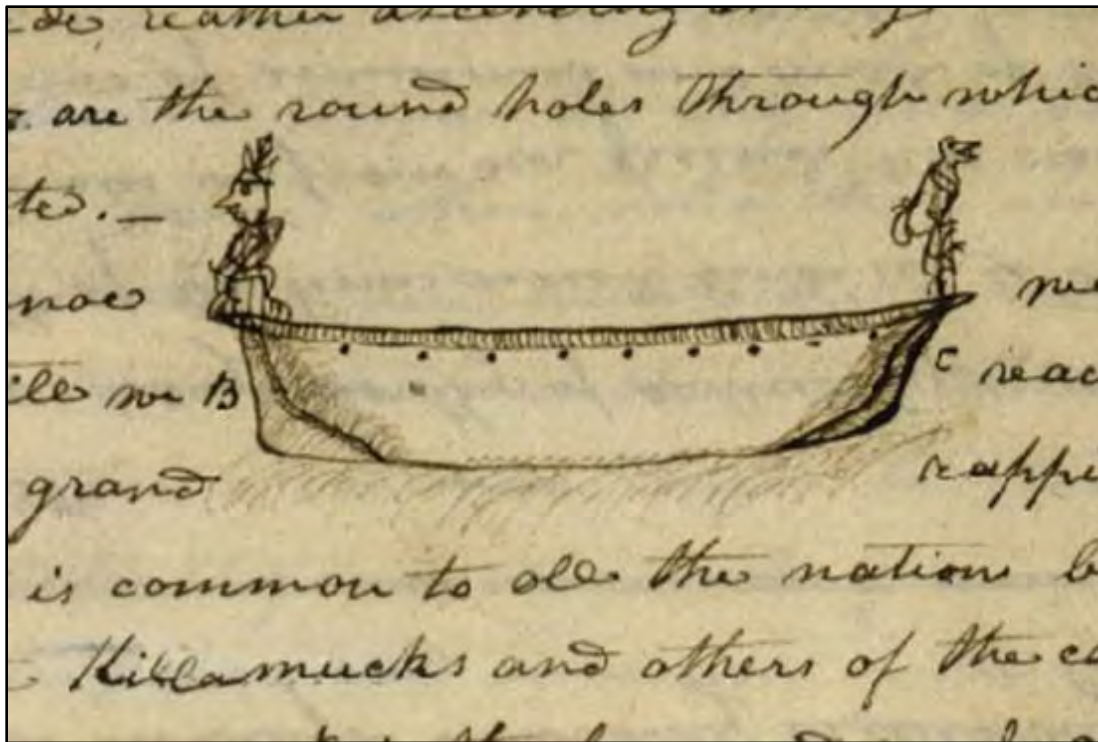 rather ascending
are the round holes through whic
ted. —
noe we
B C reac
grand rappi
is common to all the nations b
Killamucks and others of the co